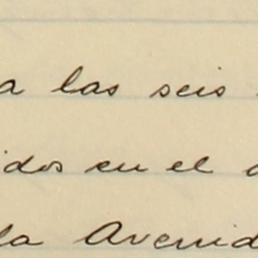 a las seis
idos en el a
la Avenid